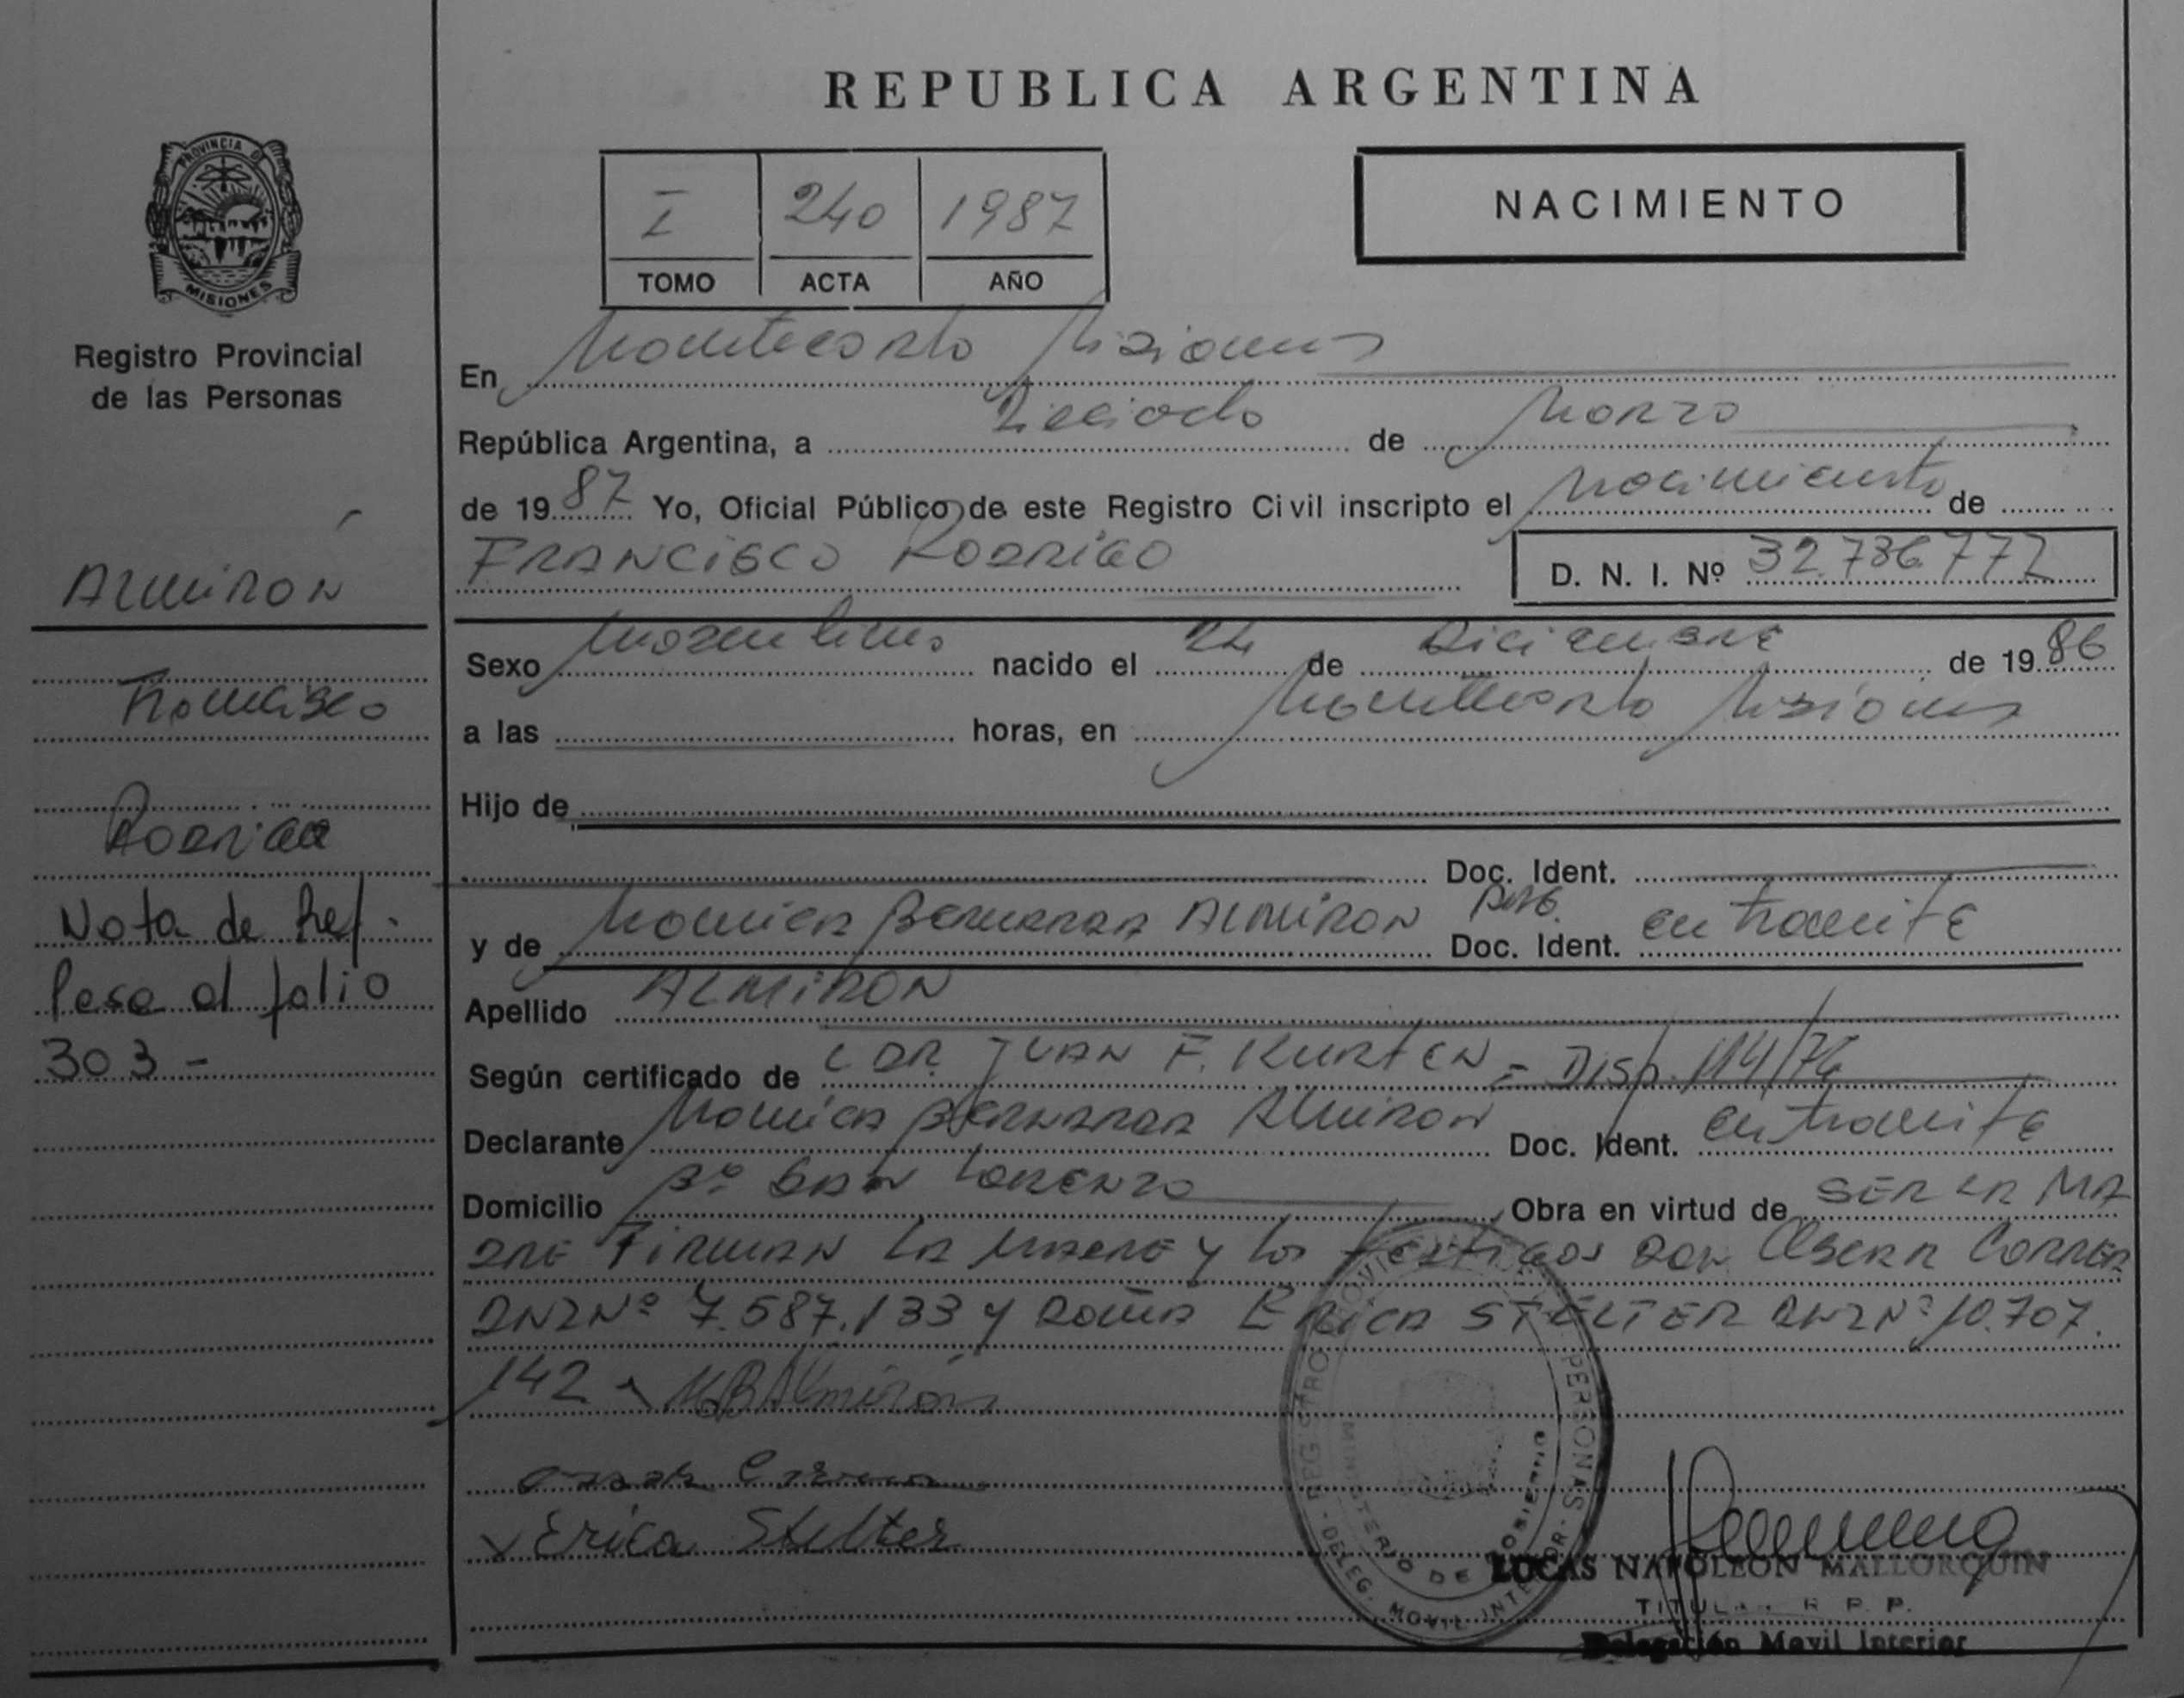 REPUBLICA ARGENTINA
PROVINCIA D
MISIONES
Registro Provincial
de las Personas
I 240 1987
TOMO ACTA AÑO
NACIMIENTO
En Montecarlo Misiones
República Argentina, a Dieciocho de Marzo
de 1987 Yo, Oficial Público de este Registro Civil inscripto el Nacimiento de
FRANCISCO RODRIGO D. N. I. Nº 32.786.772
ALMIRON
Francisco
Rodrigo
Nota de Ref.
Pasa al folio
303 -
Sexo Masculino nacido el 24 de Diciembre de 1986
a las horas, en Montecarlo Misiones
Hijo de
Doc. Ident.
y de Monica Bernarda ALMIRON Doc. Ident. en tramite
Apellido ALMIRON
Según certificado de DR. JUAN F. KURTEN = Disp. 114/76
Declarante Monica Bernarda Almiron Doc. Ident. en tramite
Domicilio Bº San Lorenzo Obra en virtud de SER LA MA
DRE Firman la madre y los testigos Don Correa
DNI Nº 7.587.133 y Doña Erica STELTER DNI Nº 10.707.
142 - MBAlmirón
x Erica Stelter
REGISTRO PERSONAS - DELEG. MOVIL INTERIOR
MINISTERIO DE GOBIERNO
LUCAS NAPOLEON MALLORQUIN
TITULAR R. P. P.
Delegación Movil Interior